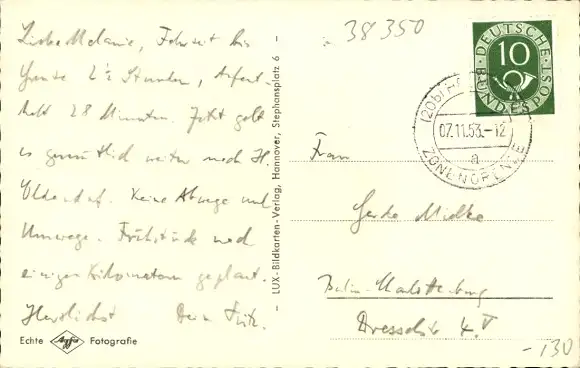 38350
Liebe Melanie, Fahrzeit bis
heute 2½ Stunden, Aufent-
halt 28 Minuten. Jetzt geht
es gemütlich weiter nach H.
Oldendorf. Keine Abwege und
Umwege. Frühstück nach
einigen Kilometern geplant.
Herzlichst Dein Fritz.
Echte Agfa Fotografie
— LUX-Bildkarten-Verlag, Hannover, Stephansplatz 6 —
DEUTSCHE
10
BUNDESPOST
(20b)
07.11.53.-12
a
ZONENGRENZE
Frau
Gerda Mielke
Berlin-Charlottenburg
Dresselstr 4.V
-130